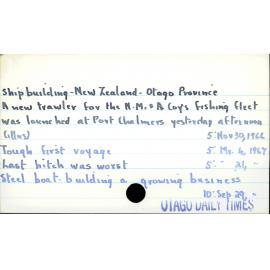 Shipbuilding - New Zealand - Otago Province
A new trawler for the N.M. & A Coy's fishing fleet
was launched at Port Chalmers yesterday afternoon
(illus) 5: Nov 30, 1966
Tough first voyage 5: Mr. 4, 1967
Last hitch was worst 5: " 21, "
Steel boat-building a growing business
10: Sep 29, "
OTAGO DAILY TIMES